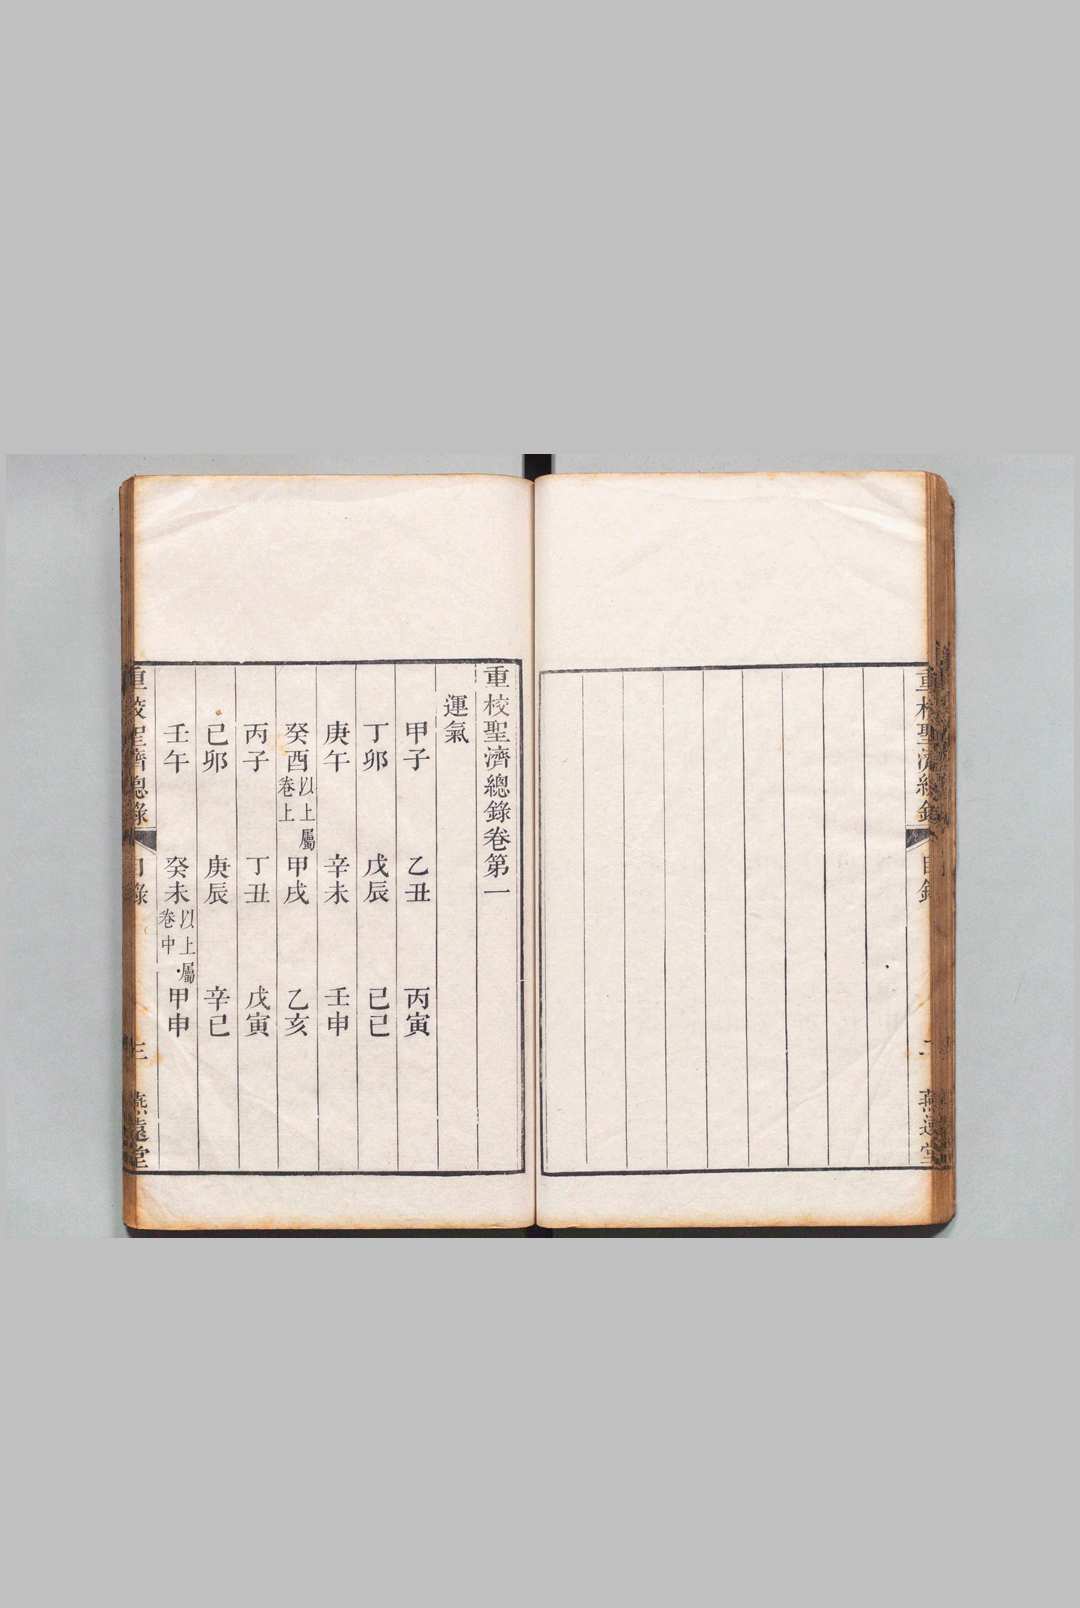 重校聖濟總錄
目錄
二
燕遠堂
重校聖濟總錄卷第一
運氣
甲子 乙丑 丙寅
丁卯 戊辰 己巳
庚午 辛未 壬申
癸酉以上屬卷上 甲戌 乙亥
丙子 丁丑 戊寅
己卯 庚辰 辛巳
壬午 癸未以上屬卷中 甲申
重校聖濟總錄
目錄
三
燕遠堂